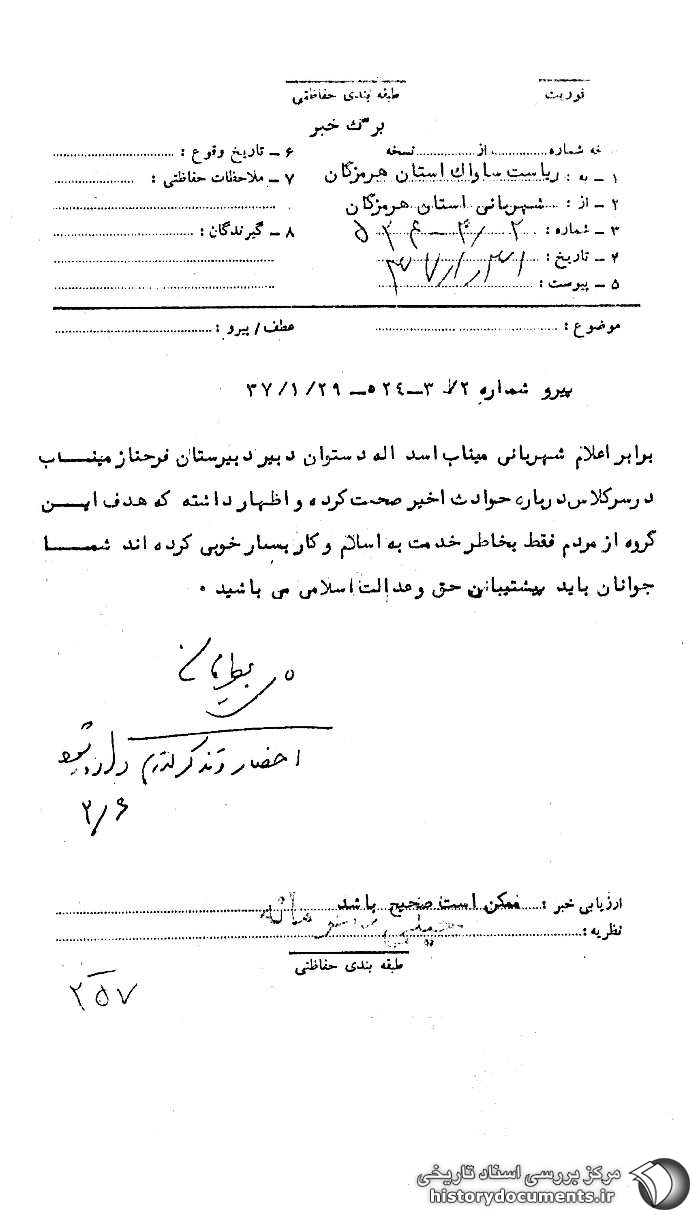 فوریت
طبقه بندی حفاظتی
برگ خبر
خه شماره از نسخه
۱ – به : ریاست ساواك استان هرمزگان
۲ – از : شهربانی استان هرمزگان
۳ – شماره :
۴ – تاریخ :
۵ – پیوست :
۶ – تاریخ وقوع :
۷ – ملاحظات حفاظتی :
۸ – گیرندگان :
موضوع :
عطف / پیرو :
پیرو شماره ۳۷/۱/۲۹
برابر اعلام شهربانی میناب اسد اله دستوان دبیر دبیرستان فرحناز مینـــاب
درسرکلاس درباره حوادث اخیر صحبت کرده و اظهار داشته که هدف ایـــن
گروه از مردم فقط بخاطر خدمت به اسلام و کار بسیار خوبی کرده اند شمـــا
جوانان باید پشتیبان حق و عدالت اسلامی می باشید ۰
احضار و تذکر لازم داده شود
۲/۶
ارزیابی خبر : ممکن است صحیح باشد
نظریه :
طبقه بندی حفاظتی
۲۵۷
مرکز بررسی اسناد تاریخی
historydocuments.ir